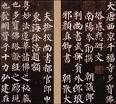 大唐西京千福寺多寶
塔感應碑文
南陽岑勛撰 朝議郎
判尚書武部員外郎
琅邪顏真卿書 朝散
大夫撿校尚書都官郎
中東海徐浩題額
粵妙法蓮華諸佛之秘
藏也多寶佛塔證經之
踊現也發明資乎十
力弘建在